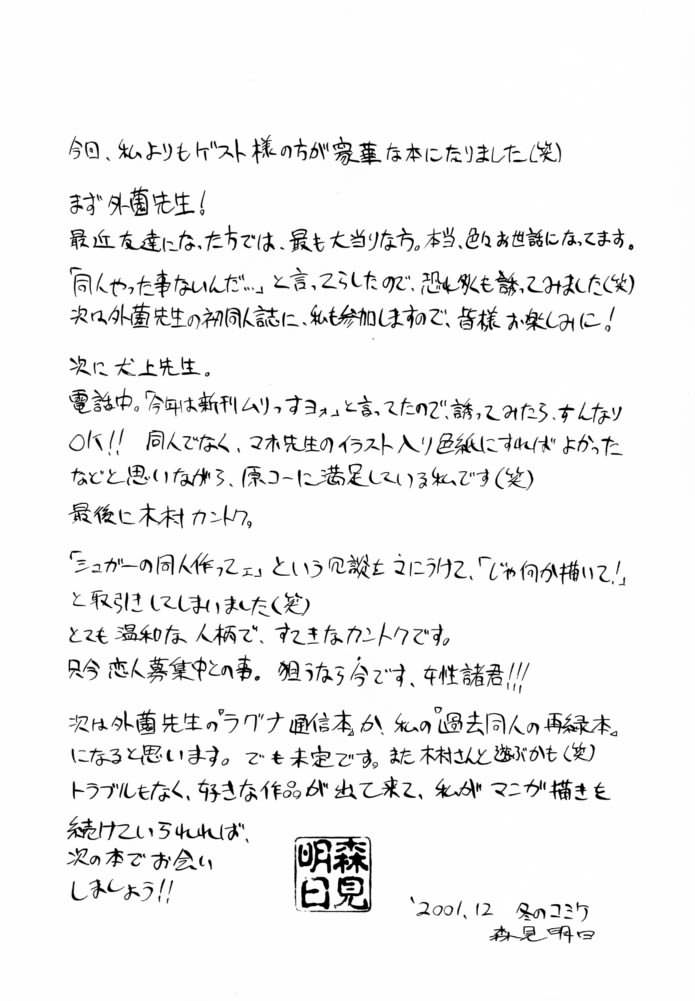 今回、私よりもゲスト様の方が豪華な本になりました(笑)
まず外薗先生!
最近友達になった方では、最も大当りな方。本当、色々お世話になってます。
「同人やった事ないんだ…」と言ってらしたので、恐れ多くも誘ってみました(笑)
次は外薗先生の初同人誌に、私も参加しますので、皆様お楽しみに!
次に犬上先生。
電話中。「今年は新刊ムリっすヨォ」と言ってたので、誘ってみたら、すんなり
OK!! 同人でなく、マホ先生のイラスト入り色紙にすればよかった
などと思いながら、原コーに満足している私です(笑)
最後に木村カントク。
「シュガーの同人作ってェ」という冗談をまにうけて、「じゃ何か描いて!」
と取引きしてしまいました(笑)
とても温和な人柄で、すてきなカントクです。
只今恋人募集中との事。狙うなら今です、女性諸君!!!
次は外薗先生の『ラグナ通信本』か、私の『過去同人の再緑本』
になると思います。でも未定です。また木村さんと遊ぶかも(笑)
トラブルもなく、好きな作品が出て来て、私がマンガ描きを
続けていられれば、
次の本でお会い
しましょう!!
森見
明日
'2001.12 冬のコミケ
森見明日